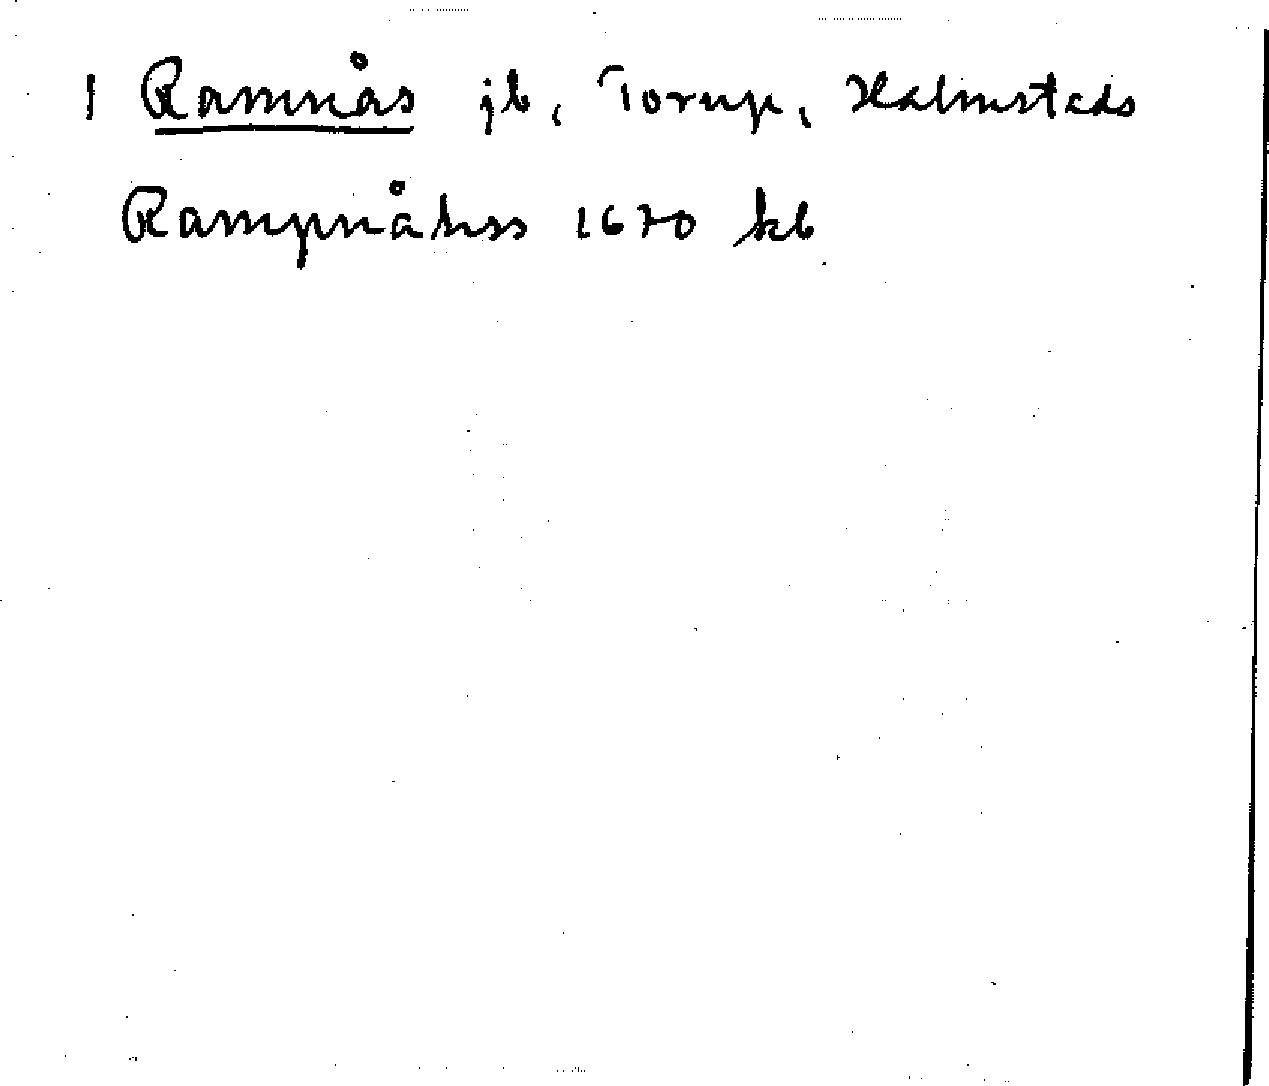 1 Ramnås jb, Torup, Halmstads
Rampnåhss 1670 kb